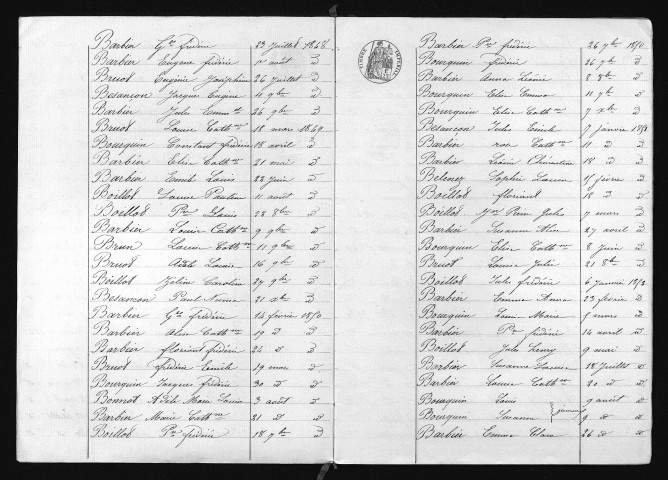 Barbier Ge frédéric 23 juillet 1868
Barbier Eugène frédéric 10 août d
Bruot Eugénie Joséphine 26 juillet d
Besançon Jacques Eugène 11 9bre d
Barbier Jules 26 9bre d
Bruot Louise Cathne 18 mars 1869
Bourquin Constant frédéric 18 avril d
Barbier Elise Cathne 21 mai d
Barbier Emile Louis 22 juin d
Boillot Louise Pauline 11 août d
Boillot Pre Louis 28 8bre d
Barbier Louise Cathne 9 9bre d
Brun Louise Cathne 11 9bre d
Bruot Adèle Louise 16 9bre d
Boillot Caroline 27 9bre d
Besançon Paul Numa 21 xbre d
Barbier Ge frédéric 14 février 1870
Barbier Cathne 19 d d
Barbier Floriane frédéric 24 d d
Bruot frédéric Emile 19 mars d
Bourquin Jacques frédéric 30 d d
Bonnot Adèle Marie Louise 3 août d
Barbier Marie Cathne 21 d d
Boillod Pre frédéric 18 7bre d
Barbier Pre frédéric 26 7bre 1870
Bourquin frédéric 26 7bre d
Barbier Anna Louise 8 8bre d
Bourquin Elise Emma 11 9bre d
Bourquin Elise Cathne 7 xbre d
Besançon Jules Emile 7 janvier 1871
Barbier Cathne 11 d d
Barbier Christine 18 d d
Belenez Sophie Louise 15 février d
Boillod floriand 18 d d
Boillot Jques Pierre Jules 7 mars d
Barbier Suzanne 27 avril d
Bourquin Elise Cathne 8 juin d
Bruot Louise Julie 21 8bre d
Boillod Jules frédéric 6 janvier 1872
Barbier Emma Anna 23 février d
Bourquin Louise Marie 5 mars d
Barbier Pre frédéric 14 avril d
Boillod Jules Henry 9 mai d
Barbier Suzanne Louise 18 juillet d
Barbier Louise Cathne 20 d d
Bourquin Louis 9 août d
Bourquin Suzanne jumeaux 9 d d
Barbier Emma Clara 26 d d